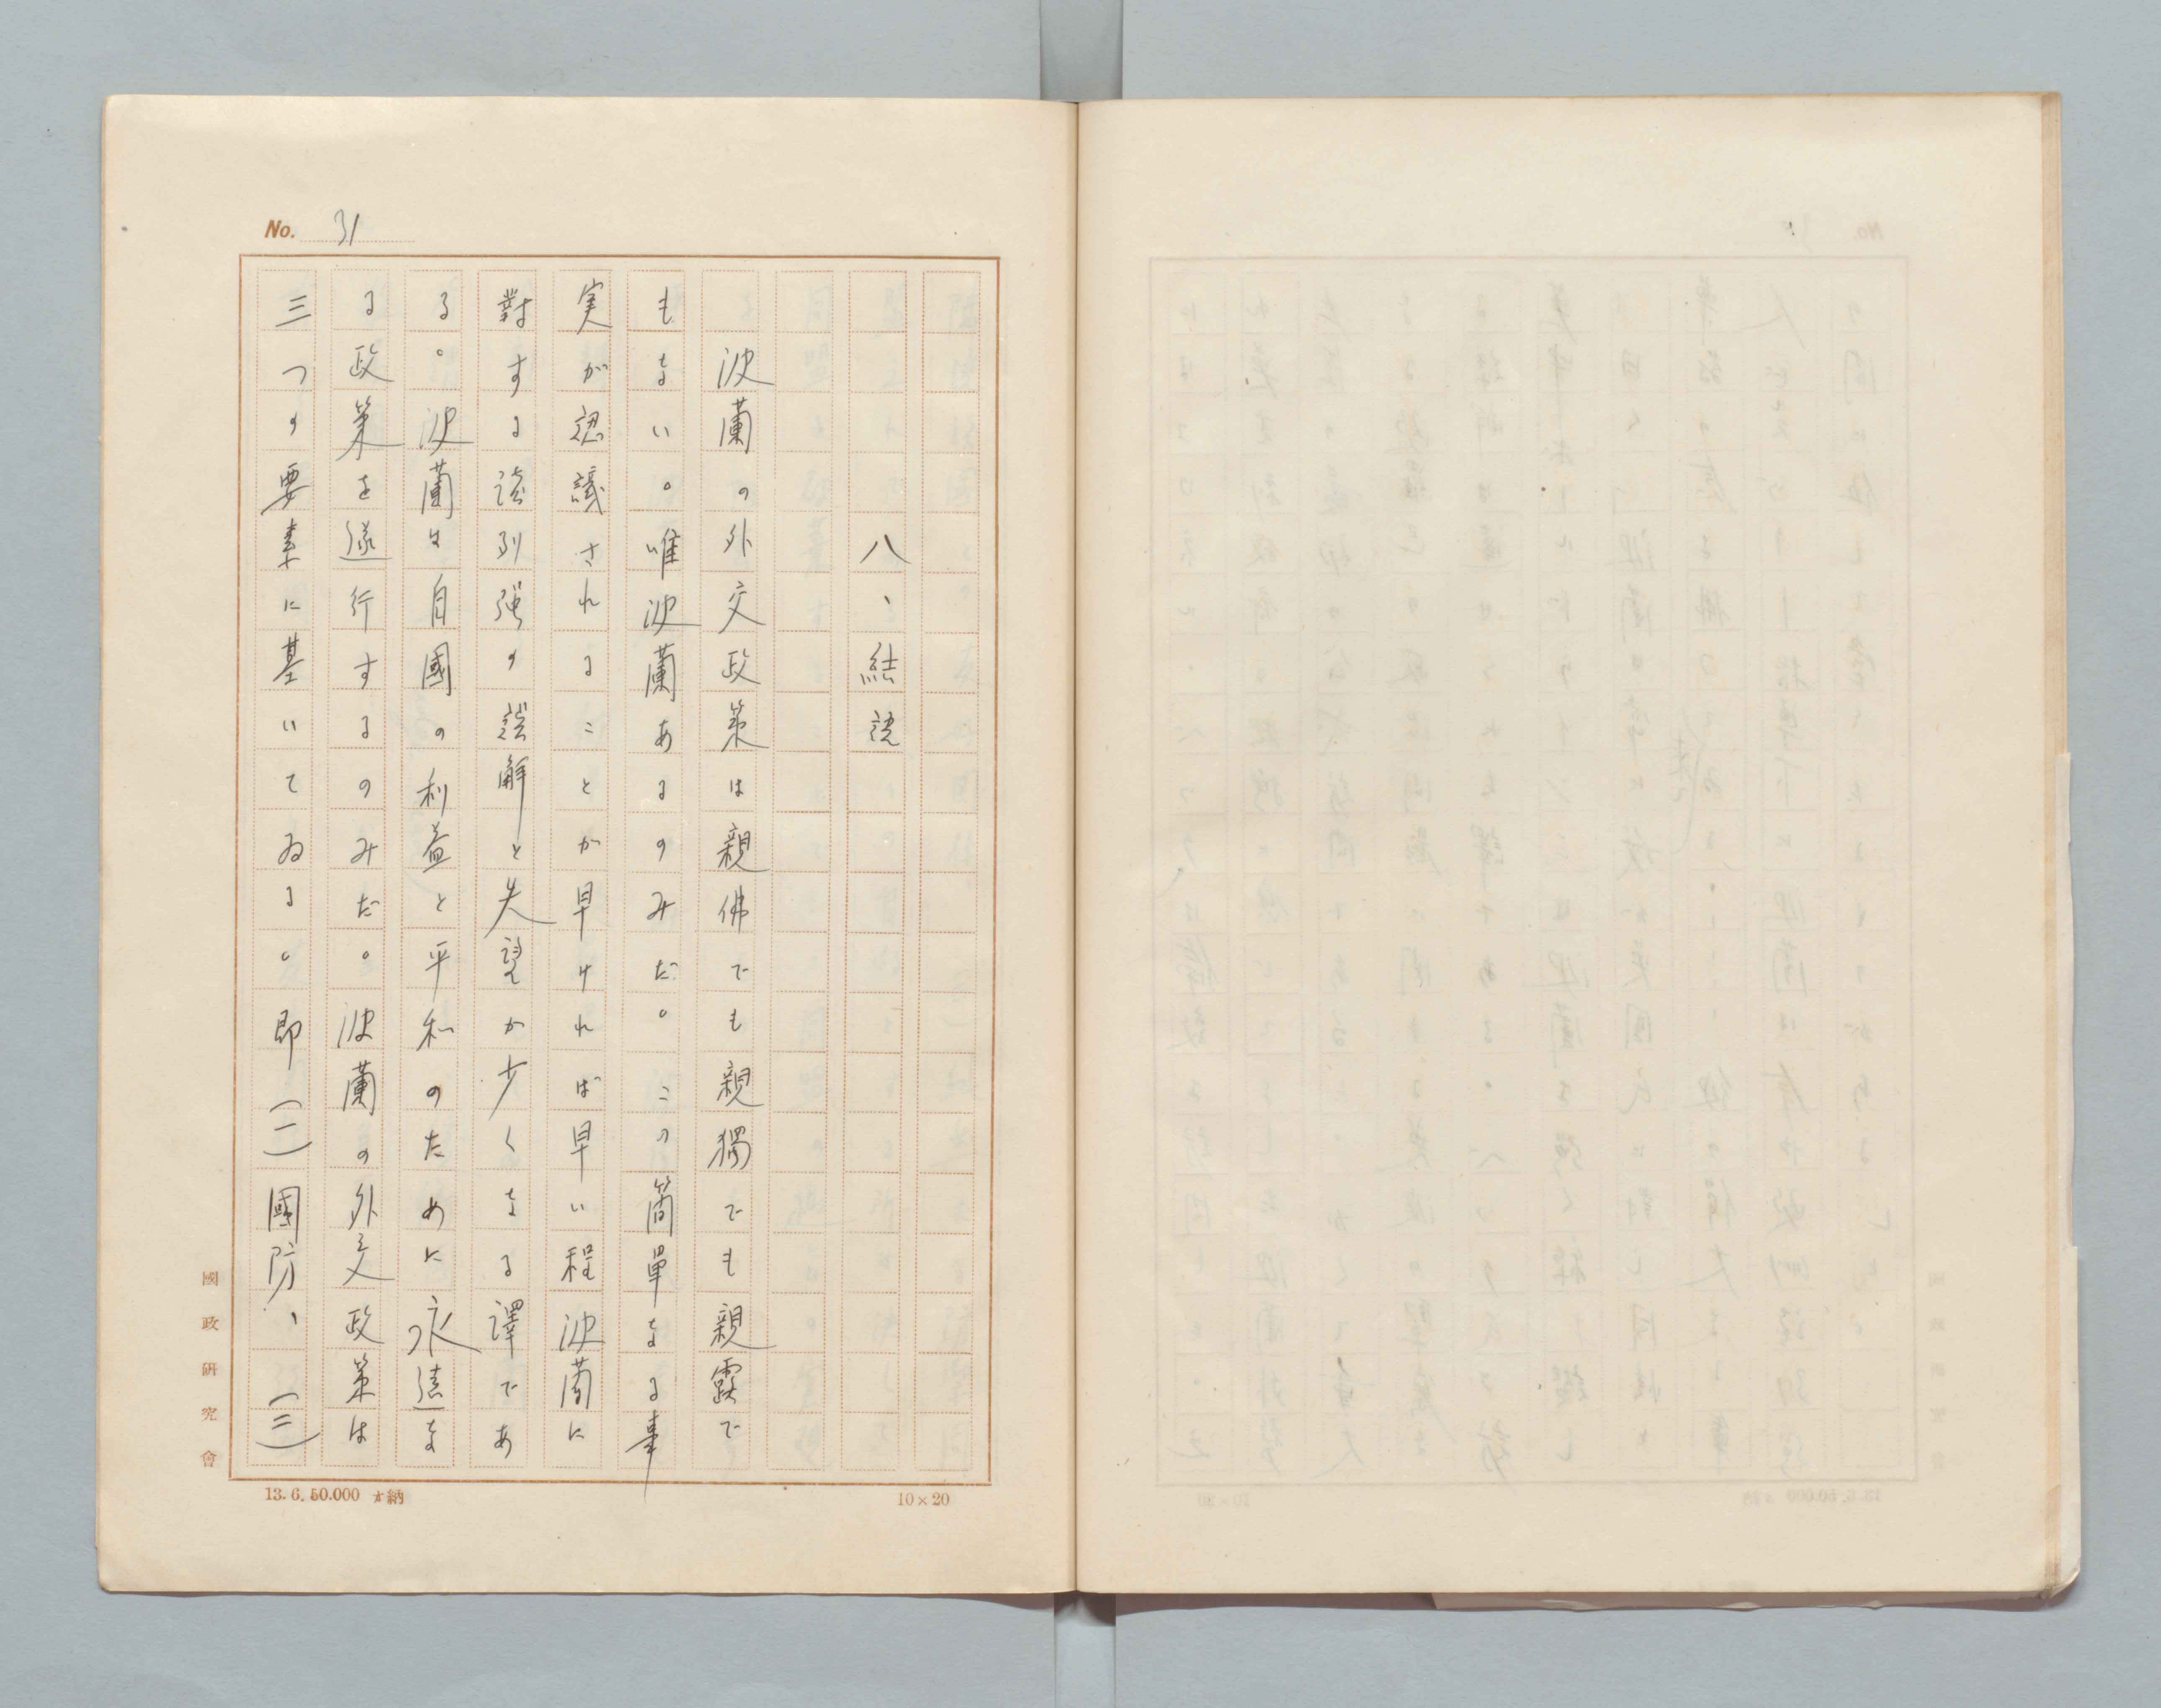 No. 31
八、結説
波蘭の外交政策は親佛でも親獨でも親露で
もない。唯波蘭あるのみだ。この簡單なる事
実が認識されることが早ければ早い程波蘭に
對する諸列强の誤解と失望が少くなる譯であ
る。波蘭は自國の利益と平和のために永遠な
る政策を遂行するのみだ。波蘭の外交政策は
三つの要素に基いてゐる。即(一)國防、(二)
國政研究會
13.6.50.000 納
10×20